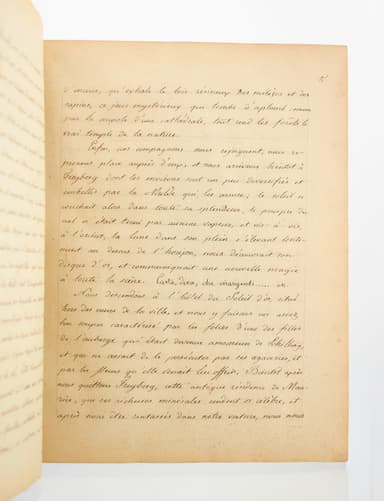 d'encens, qu'exhale le bois résineux des mélèzes et des
sapins, ce jour mystérieux qui tombe d'aplomb, comme
par la coupole d'une cathédrale, tout rend les forêts le
vrai temple de la nature.
Enfin, nos compagnons nous rejoignent, nous re-
prenons place auprès d'eux, et nous arrivons bientôt à
Freyberg dont les environs sont un peu diversifiés et
embellis par la Mulde qui les arrose; le soleil se
couchait alors dans toute sa splendeur, le pourpre du
ciel n'était terni par aucune vapeur, et vis-à-vis,
à l'orient, la lune dans son plein s'élevant lente-
ment au dessus de l'horizon, nous découvrait son
disque d'or, et communiquait une nouvelle magie
à toute la scène.
Nous descendons à l'hôtel du Soleil d'or, situé
hors des murs de la ville, et nous y faisons un assez
bon souper caractérisé par les folies d'une des filles
de l'auberge qui était devenue amoureuse de
et qui ne cessait de le persécuter par ses agaceries, et
par les fleurs qu'elle venait lui offrir. Bientôt après
nous quittons Freyberg, cette antique résidence de
que ses richesses minérales rendent si célèbre, et
après nous être entassés dans notre voiture, nous nous